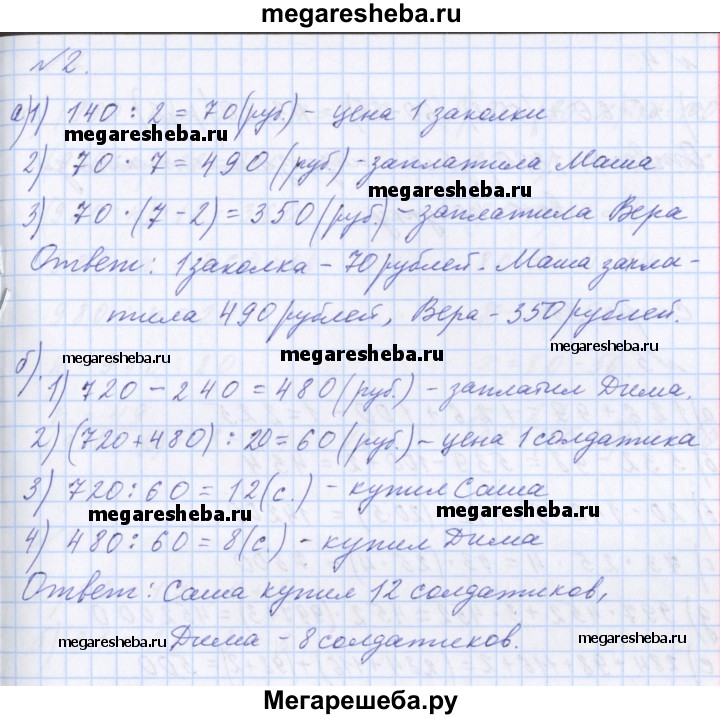 megaresheba.ru
№2.
а)1) 140 : 2 = 70 (руб.) - цена 1 заколки
megaresheba.ru
2) 70 · 7 = 490 (руб.) - заплатила Маша
megaresheba.ru
3) 70 · (7 - 2) = 350 (руб.) - заплатила Вера
Ответ: 1 заколка - 70 рублей. Маша запла-
тила 490 рублей, Вера - 350 рублей.
megaresheba.ru megaresheba.ru megaresheba.ru
б) 1) 720 - 240 = 480 (руб.) - заплатил Дима.
2) (720 + 480) : 20 = 60 (руб.) - цена 1 солдатика
3) 720 : 60 = 12 (с.) - купил Саша
megaresheba.ru megaresheba.ru
4) 480 : 60 = 8 (с) - купил Дима
Ответ: Саша купил 12 солдатиков,
Дима - 8 солдатиков.
megaresheba.ru megaresheba.ru
Мегарешеба.ру